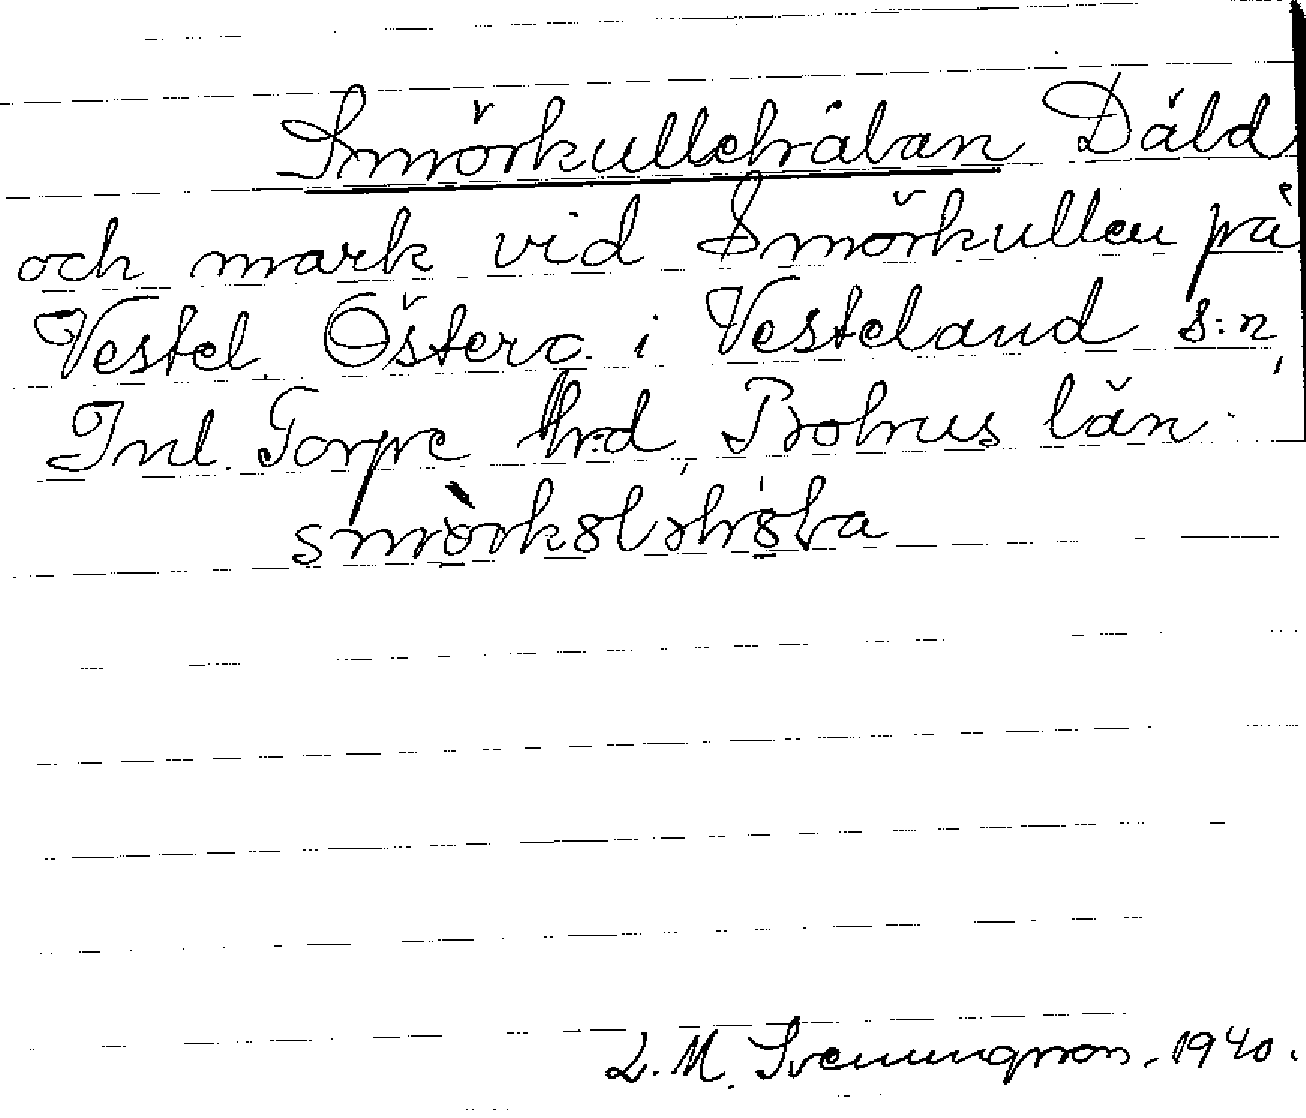 Smörkullehålan Däld
och mark vid Smörkullen på
Vestel. Österg. i Vesteland s:n,
Inl. Torpe hd, Bohus län.
L. M. Svenungsson. 1940.